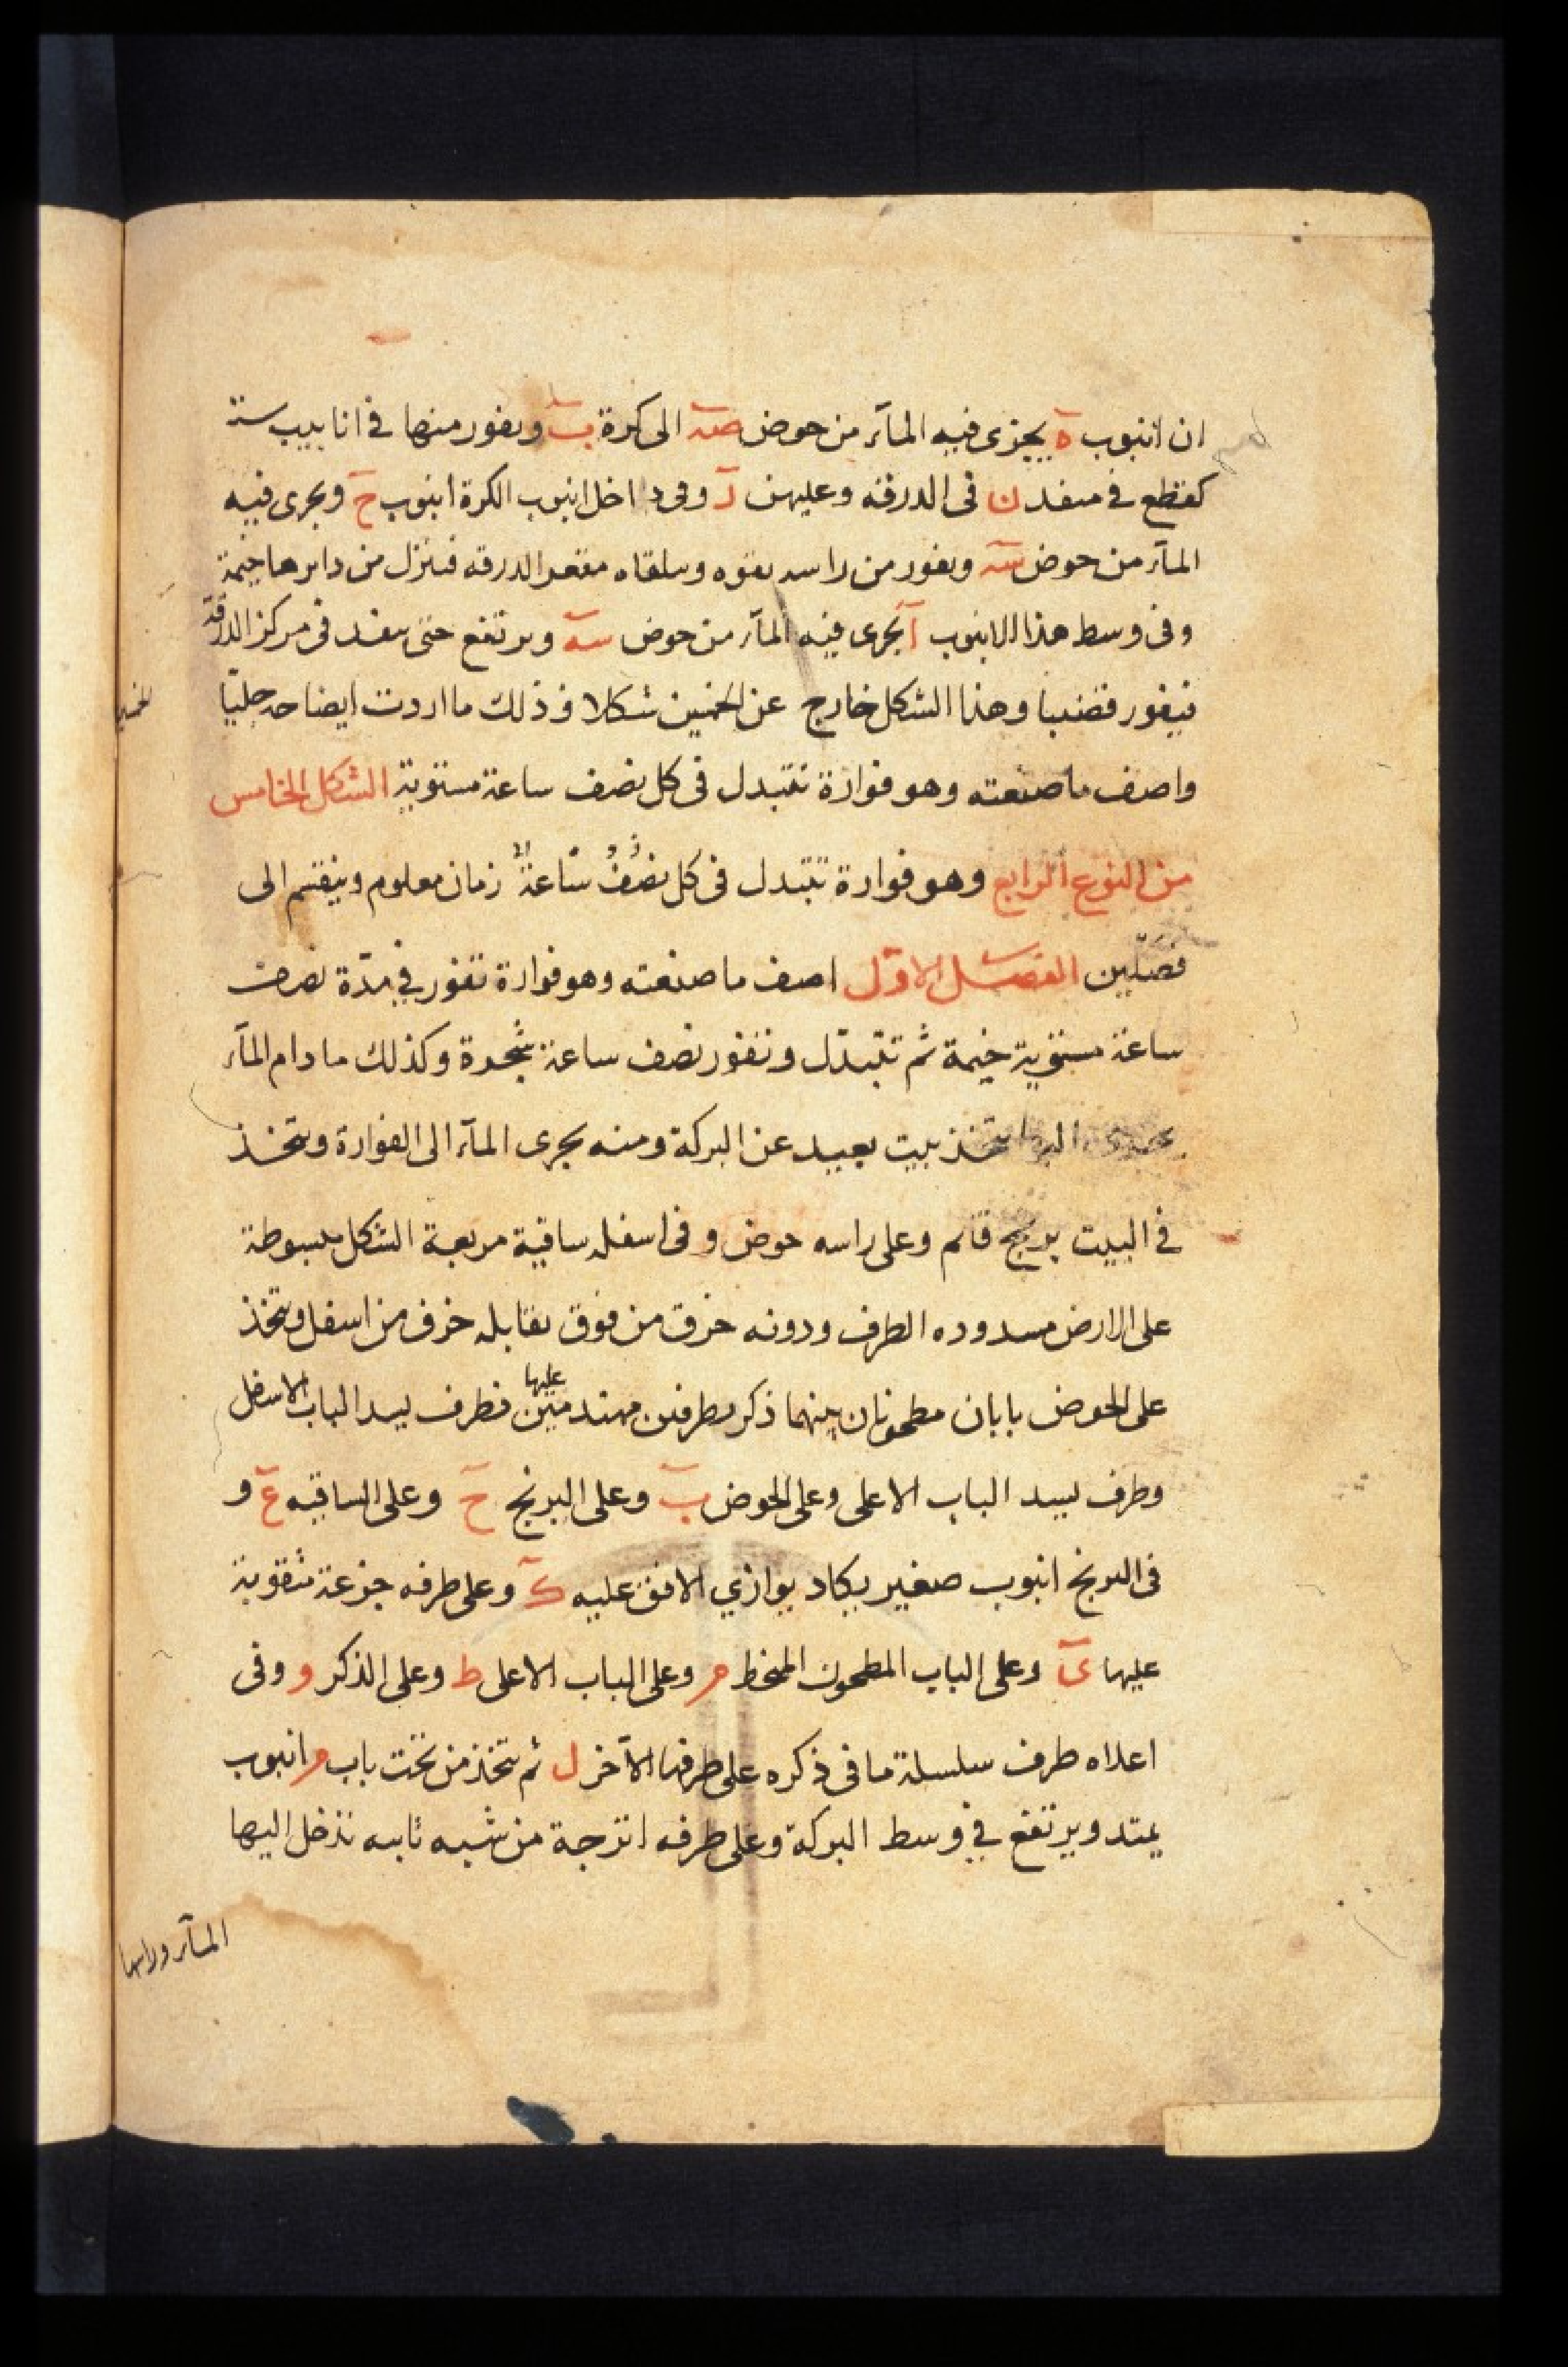 ان انبوب ه يجرى فيه المآء من حوض صه الى كرة ب ويفور منها فى انابيب ستة
كقطع فى منفذ ن فى الدرقه وعليهن د وفى داخل انبوب الكرة انبوب ح ويجرى فيه
المآء من حوض سه ويفور من راسه بقوه وىلقاه مقعر الدرقه فىنزل من دايرها خيمة
وفى وسط هذا الانبوب آ يجرى فيه المآء من حوض سه ويرتفع حتى ىنفذ فى مركز الدرقة
فيفور قضيبا وهذا الشكل خارج عن الخمين شكلا وذلك ما اردت ايضاحه جليّا
واصف ما صنعته وهو فوارة تتبدل فى كل نصف ساعة مستوية الشكل الخامس
من النوع الرابع وهو فوارة تتبدل فى كل نصف ساعة زمان معلوم وينقسم الى
فصلين الفصل الاول اصف ما صنعته وهو فوارة تفور فى مدّة نصف
ساعة مستوية خيمة ثم تتبدّل وتفور نصف ساعة شجرة وكذلك ما دام المآء
يتخذ بيت بعيد عن البركة ومنه يجرى المآء الى الفوارة ويتخذ
فى البيت بربخ قائم وعلى راسه حوض وفى اسفله ساقية مربعة الشكل مبسوطة
على الارض مسدوده الطرف ودونه خرق من فوق يقابله خرق من اسفل ويتخذ
على الحوض بابان مطحونان بينهما ذكر بطرفين مهندمين عليها فطرف يسد الباب الاسفل
وطرف يسد الباب الاعلى وعلى الحوض ب وعلى البربخ ح وعلى الساقيه ع و
فى البربخ انبوب صغير يكاد يوازي الافق عليه ك وعلى طرفه جزعة مثقوبة
عليها ى وعلى الباب المطحون المنحط م وعلى الباب الاعلى ط وعلى الذكر و وفى
اعلاه طرف سلسلة ما فى ذكره على طرفها الآخر ل ثم يتخذ من تحت باب م انبوب
يمتد ويرتفع فى وسط البركة وعلى طرفه اترجة من شبه ثابىه تدخل اليها
المآء وراسها